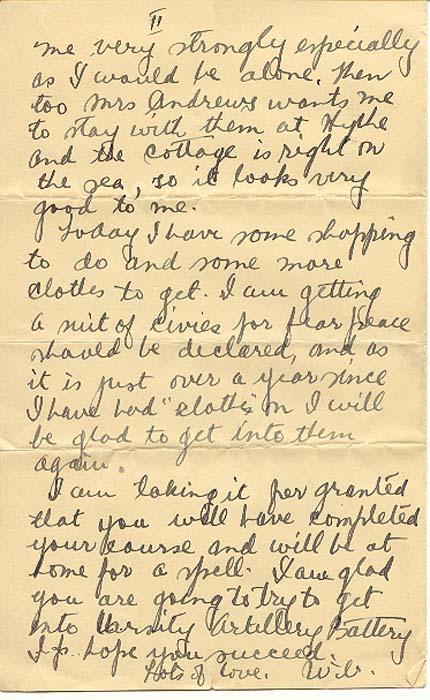 II
me very strongly especially
as I would be alone. Then
too Mrs Andrews wants me
to stay with them at Hythe
and the cottage is right on
the sea, so it looks very
good to me.
Today I have some shopping
to do and some more
clothes to get. I am getting
a suit of civies for fear peace
should be declared, and as
it is just over a year since
I have had "clothes" on I will
be glad to get into them
again.
I am taking it for granted
that you will have completed
your course and will be at
home for a spell. I am glad
you are going to try to get
into Varsity Artillery Battery
hope you succeed.
Lots of love.